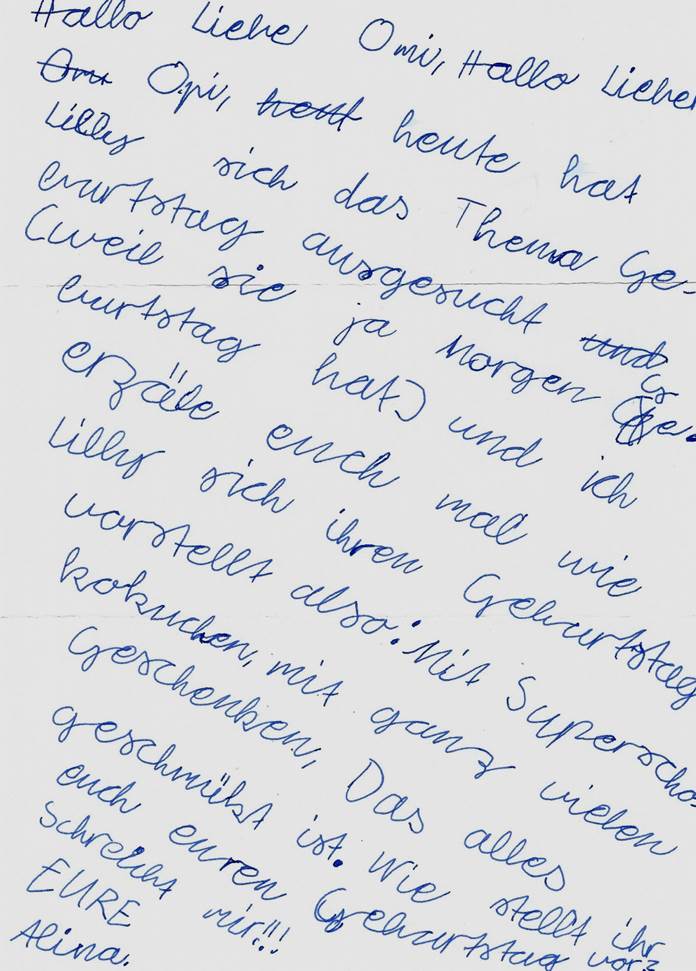 Hallo Liebe Omi, Hallo Lieber
Omi Opi, heut heute hat
Lilly sich das Thema Ge-
burtstag ausgesucht und
(weil sie ja Morgen Ge-
burtstag hat) und ich
erzäle euch mal wie
Lilly sich ihren Geburtstag
vorstellt also: Mit Superscho-
kokuchen, mit ganz vielen
Geschenken, Das alles
geschmükt ist. Wie stellt ihr
euch euren Geburtstag vor?
Schreibt mir!!!
EURE
Alina.